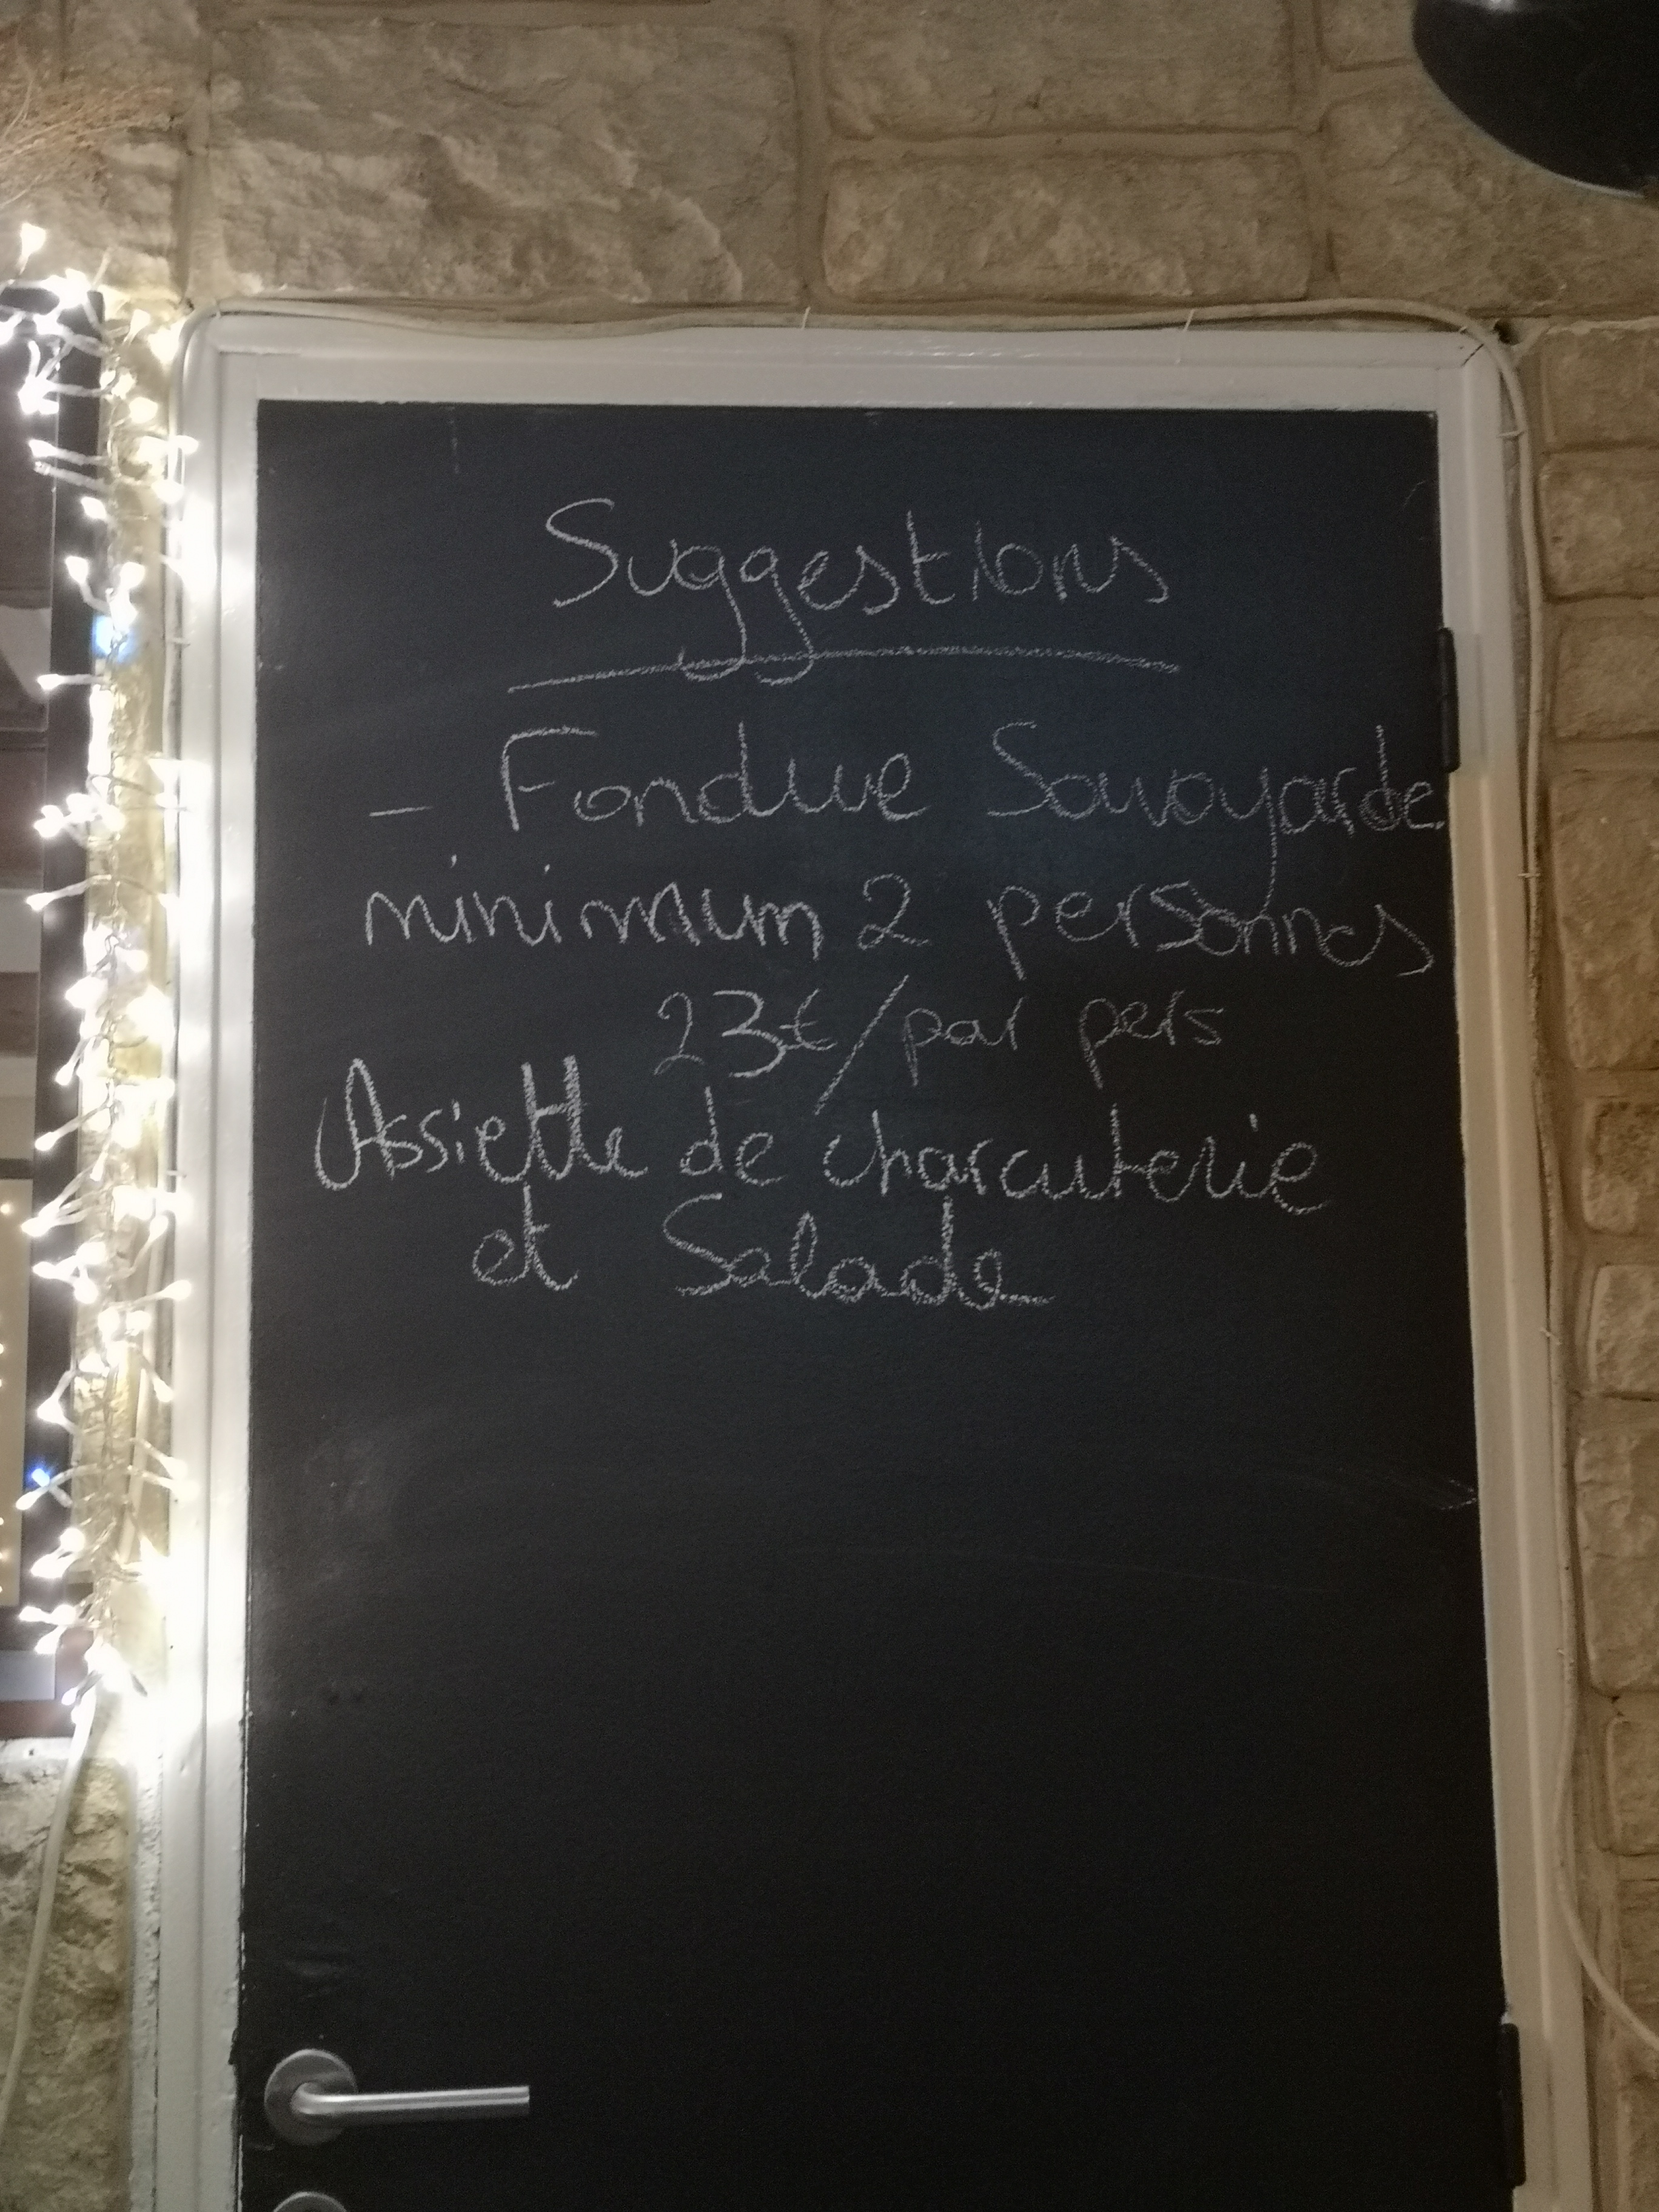 Suggestions
- Fondue Savoyarde
minimum 2 personnes
23€/par pers
Assiette de charcuterie
et Salade